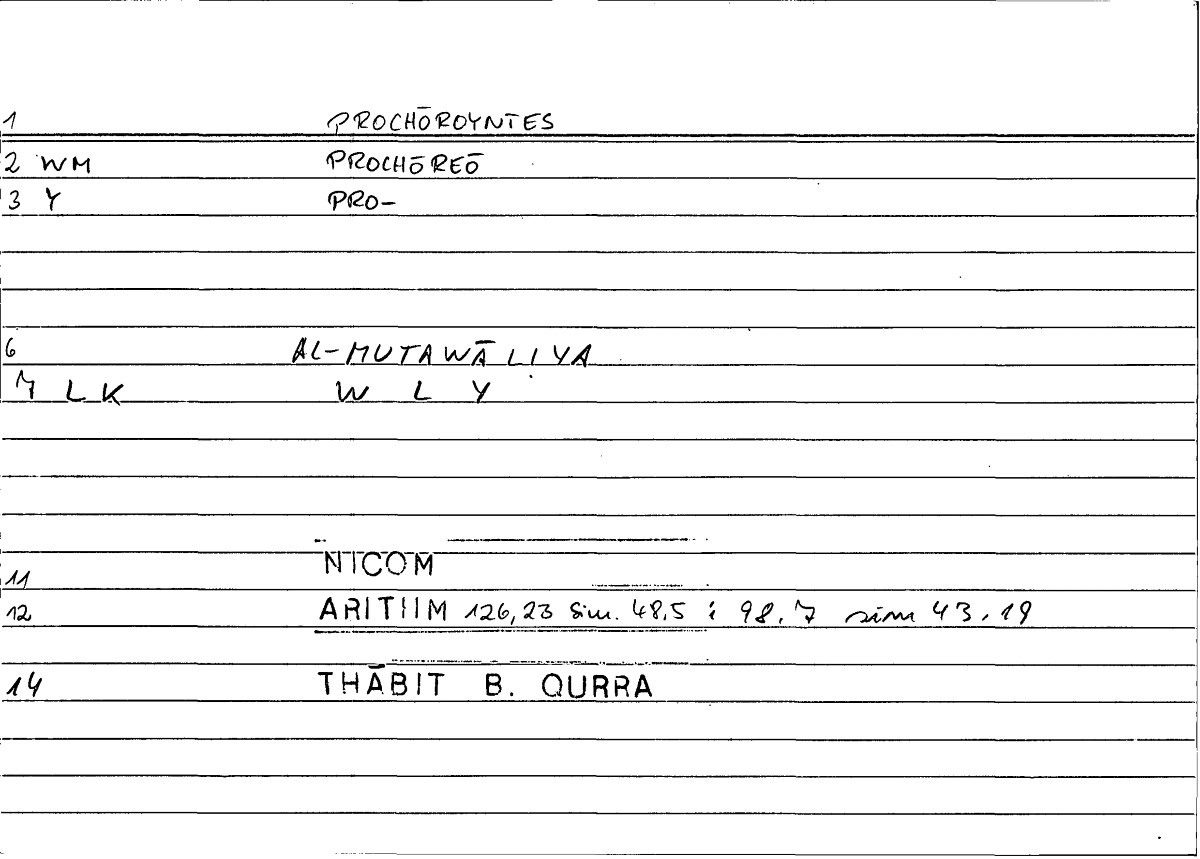 1 PROCHŌROYNTES
2 WM PROCHŌREŌ
3 Y PRO-
6 AL-MUTAWĀLIYA
7 LK W L Y
11 NICOM
12 ARITHM 126,23 sim. 48,5 ; 98,7 sim 43,19
14 THĀBIT B. QURRA